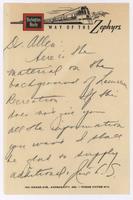 Burlington
Route
WAY OF THE
Zephyrs
Dr. Allen:
Here is the
material on the
background of
Recreation If this
does not give you
all the information
you want I shall
be glad to supply
additional.